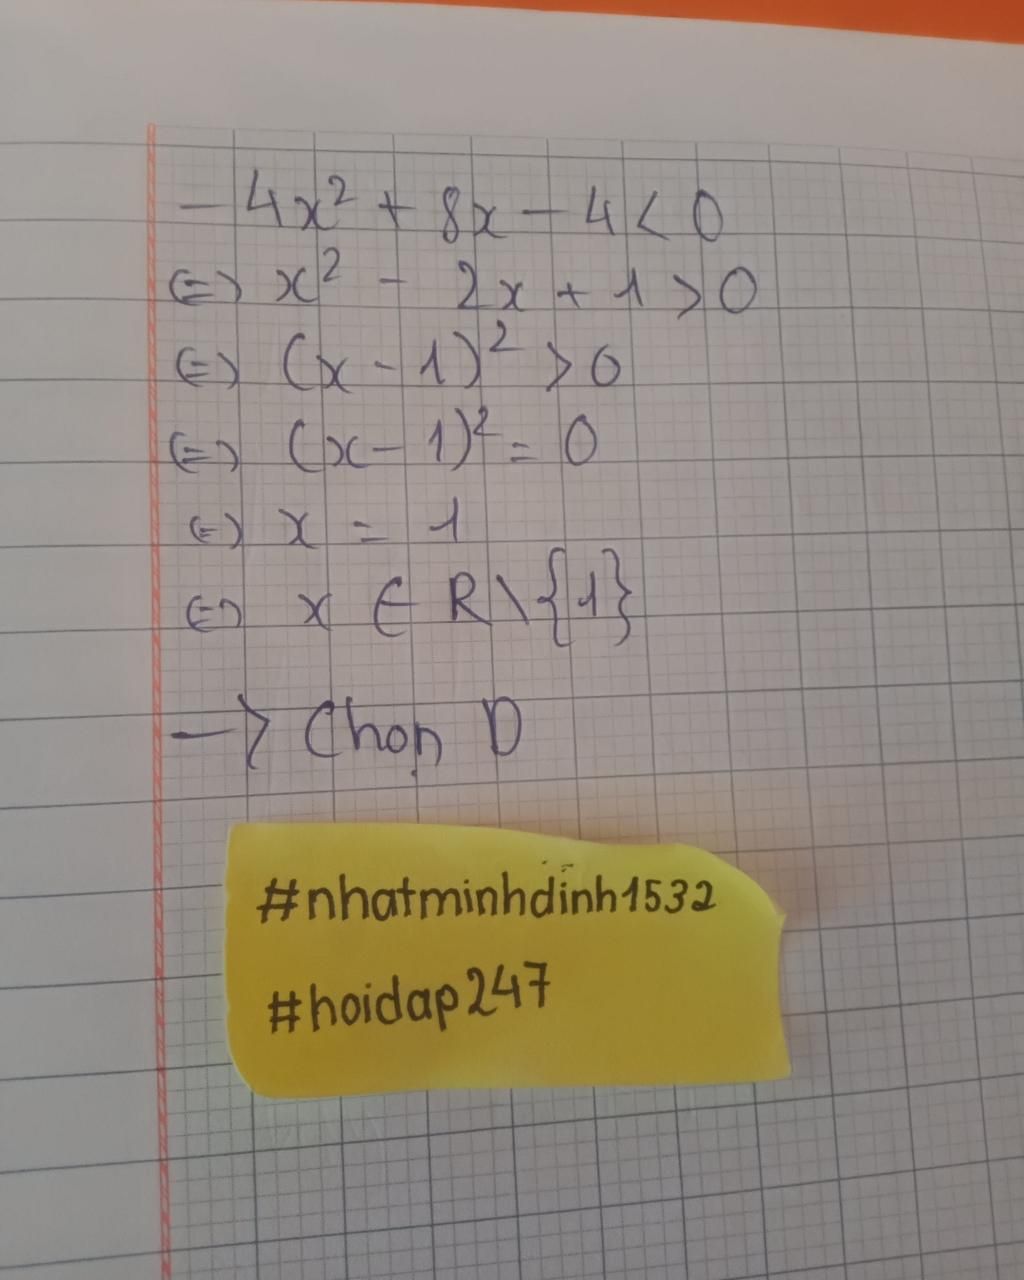 - 4x² + 8x - 4 < 0
⇔ x² - 2x + 1 > 0
⇔ (x - 1)² > 0
⇔ (x - 1)² = 0
⇔ x = 1
⇔ x ∈ R \ {1}
-> Chọn D
#nhatminhdinh1532
#hoidap247